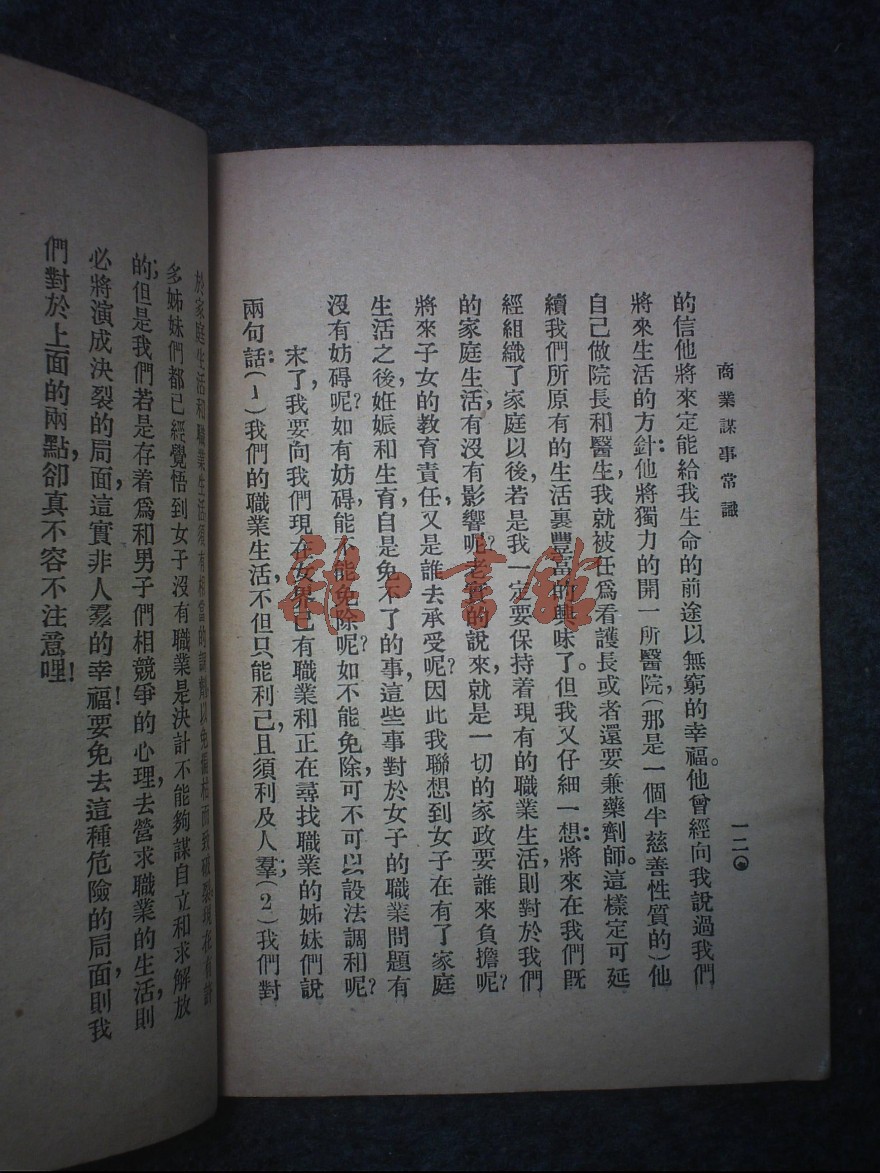 商業謀事常識
一二〇
的信他將來定能給我生命的前途以無窮的幸福。他曾經向我說過我們
將來生活的方針：他將獨力的開一所醫院，（那是一個半慈善性質的）他
自己做院長和醫生，我就被任爲看護長或者還要兼藥劑師。這樣定可延
續我們所原有的生活裏豐富的興味了。但我又仔細一想：將來在我們旣
經組織了家庭以後，若是我一定要保持着現有的職業生活，則對於我們
的家庭生活，有沒有影響呢？老實的說來，就是一切的家政要誰來負擔呢？
將來子女的教育責任，又是誰去承受呢？因此我聯想到女子在有了家庭
生活之後，姙娠和生育，自是免不了的事，這些事對於女子的職業問題有
沒有妨碍呢？如有妨碍，能不能免除呢？如不能免除，可不可以設法調和呢？
末了，我要向我們現在女界已有職業和正在尋找職業的姊妹們說
兩句話：（1）我們的職業生活，不但只能利己，且須利及人羣；（2）我們對
於家庭生活和職業生活須有相當的調劑，以免偏枯而致破裂。現在有許
多姊妹們都已經覺悟到女子沒有職業是決計不能夠謀自立和求解放
的；但是我們若是存着爲和男子們相競爭的心理，去營求職業的生活，則
必將演成決裂的局面，這實非人羣的幸福！要免去這種危險的局面，則我
們對於上面的兩點，卻真不容不注意哩！
雜·書館